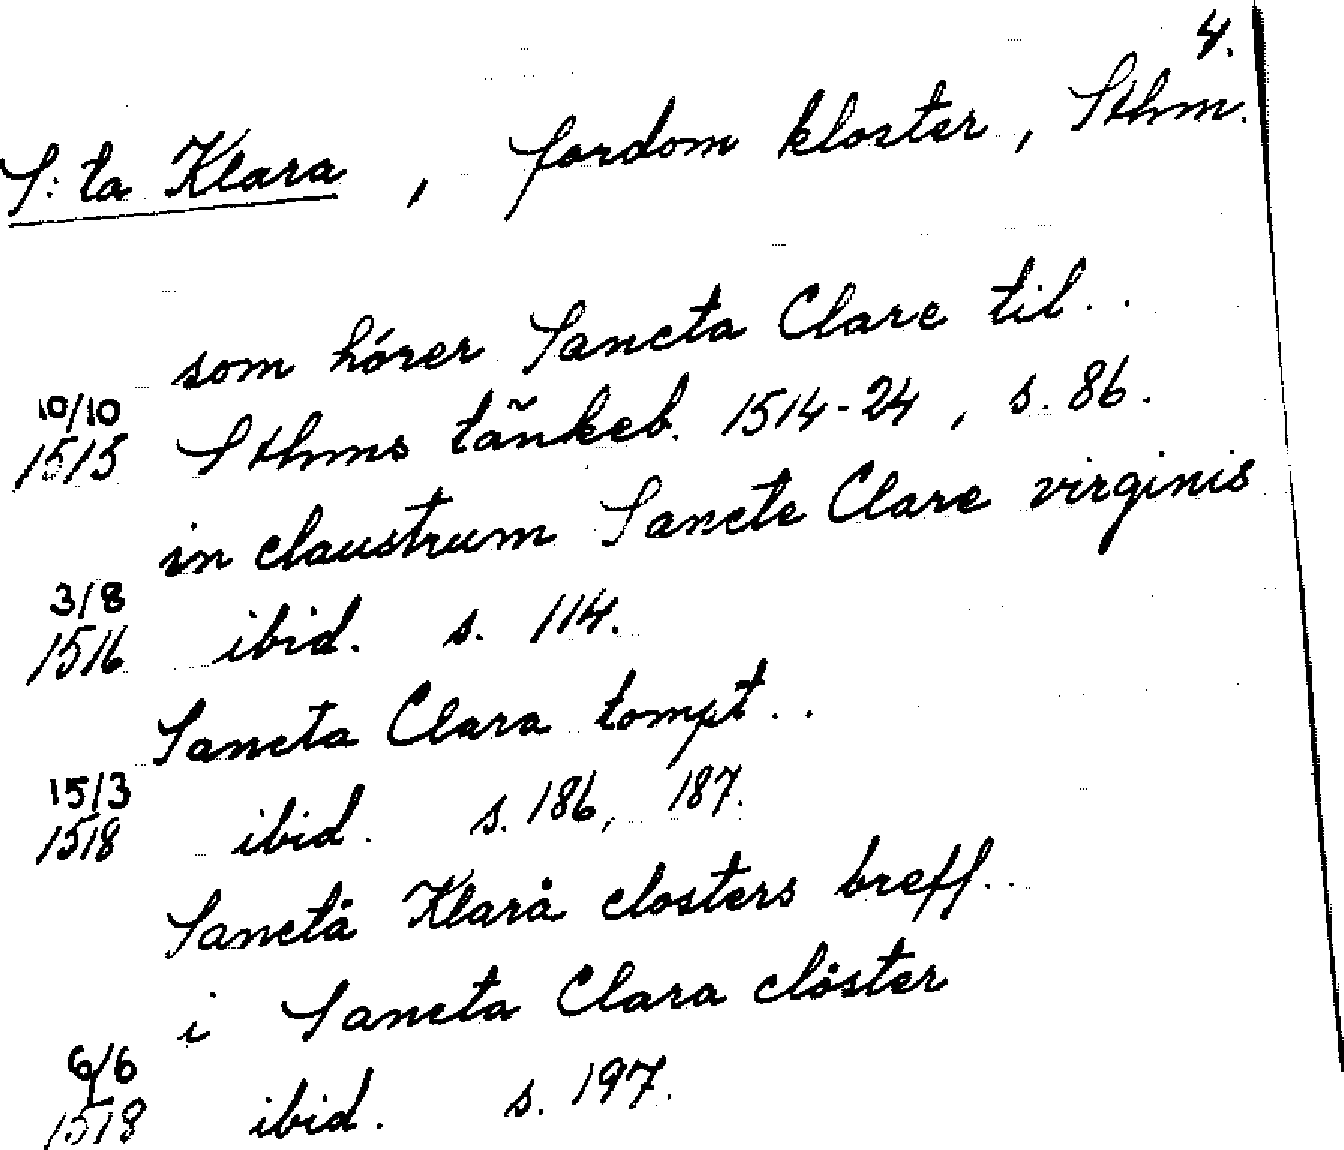 4.
S:ta Klara, fordom kloster, Sthm.
som hörer Sancta Clare til..
10/10
1515 Sthms tänkeb. 1514-24, s. 86.
in claustrum Sancte Clare virginis
3/8
1516 ibid. s. 114.
Sancta Clara tompt..
15/3
1518 ibid. s. 186, 187.
Sanctå Klarå closters breff..
i Sancta Clara clöster
6/6
1518 ibid. s. 197.